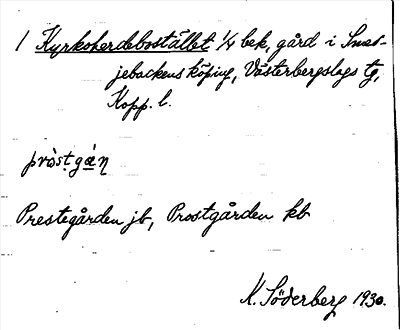 1 Kyrkoherdebostället 1/4 bek, gård i Smed-
jebackens köping, Västerbergslags tg,
Kopp. l.
pròstgá̠ṇ
Prestegården jb, Prostgården kb
K. Söderberg 1930.